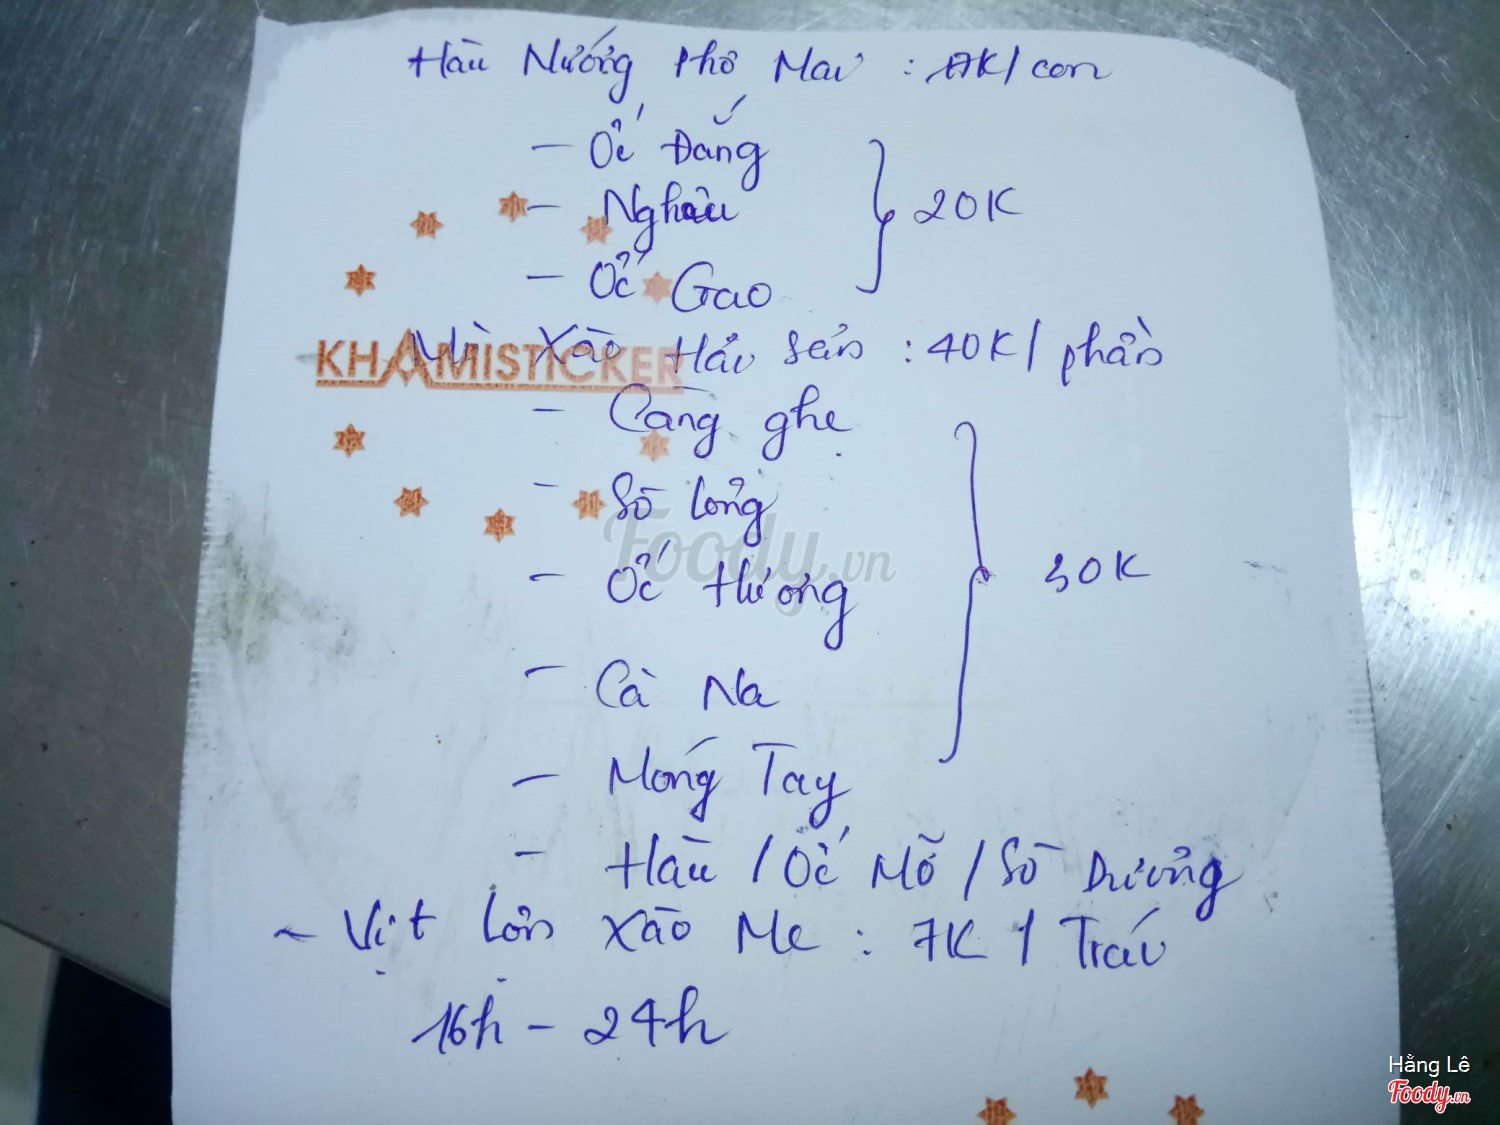 Hàu Nướng Phô Mai : 17K/con
- Ốc Đắng
- Nghêu
- Ốc Gạo
20K
Mì Xào Hải Sản : 40K/ phần
KHAMISTICKER
- Càng ghẹ
- Sò lông
- Ốc Hương
- Cà Na
- Móng Tay
30K
- Hàu / Ốc Mỡ / Sò Dương
- Vịt lộn Xào Me : 7K / Trái
16h - 24h
Foody.vn
Hằng Lê
Foody.vn